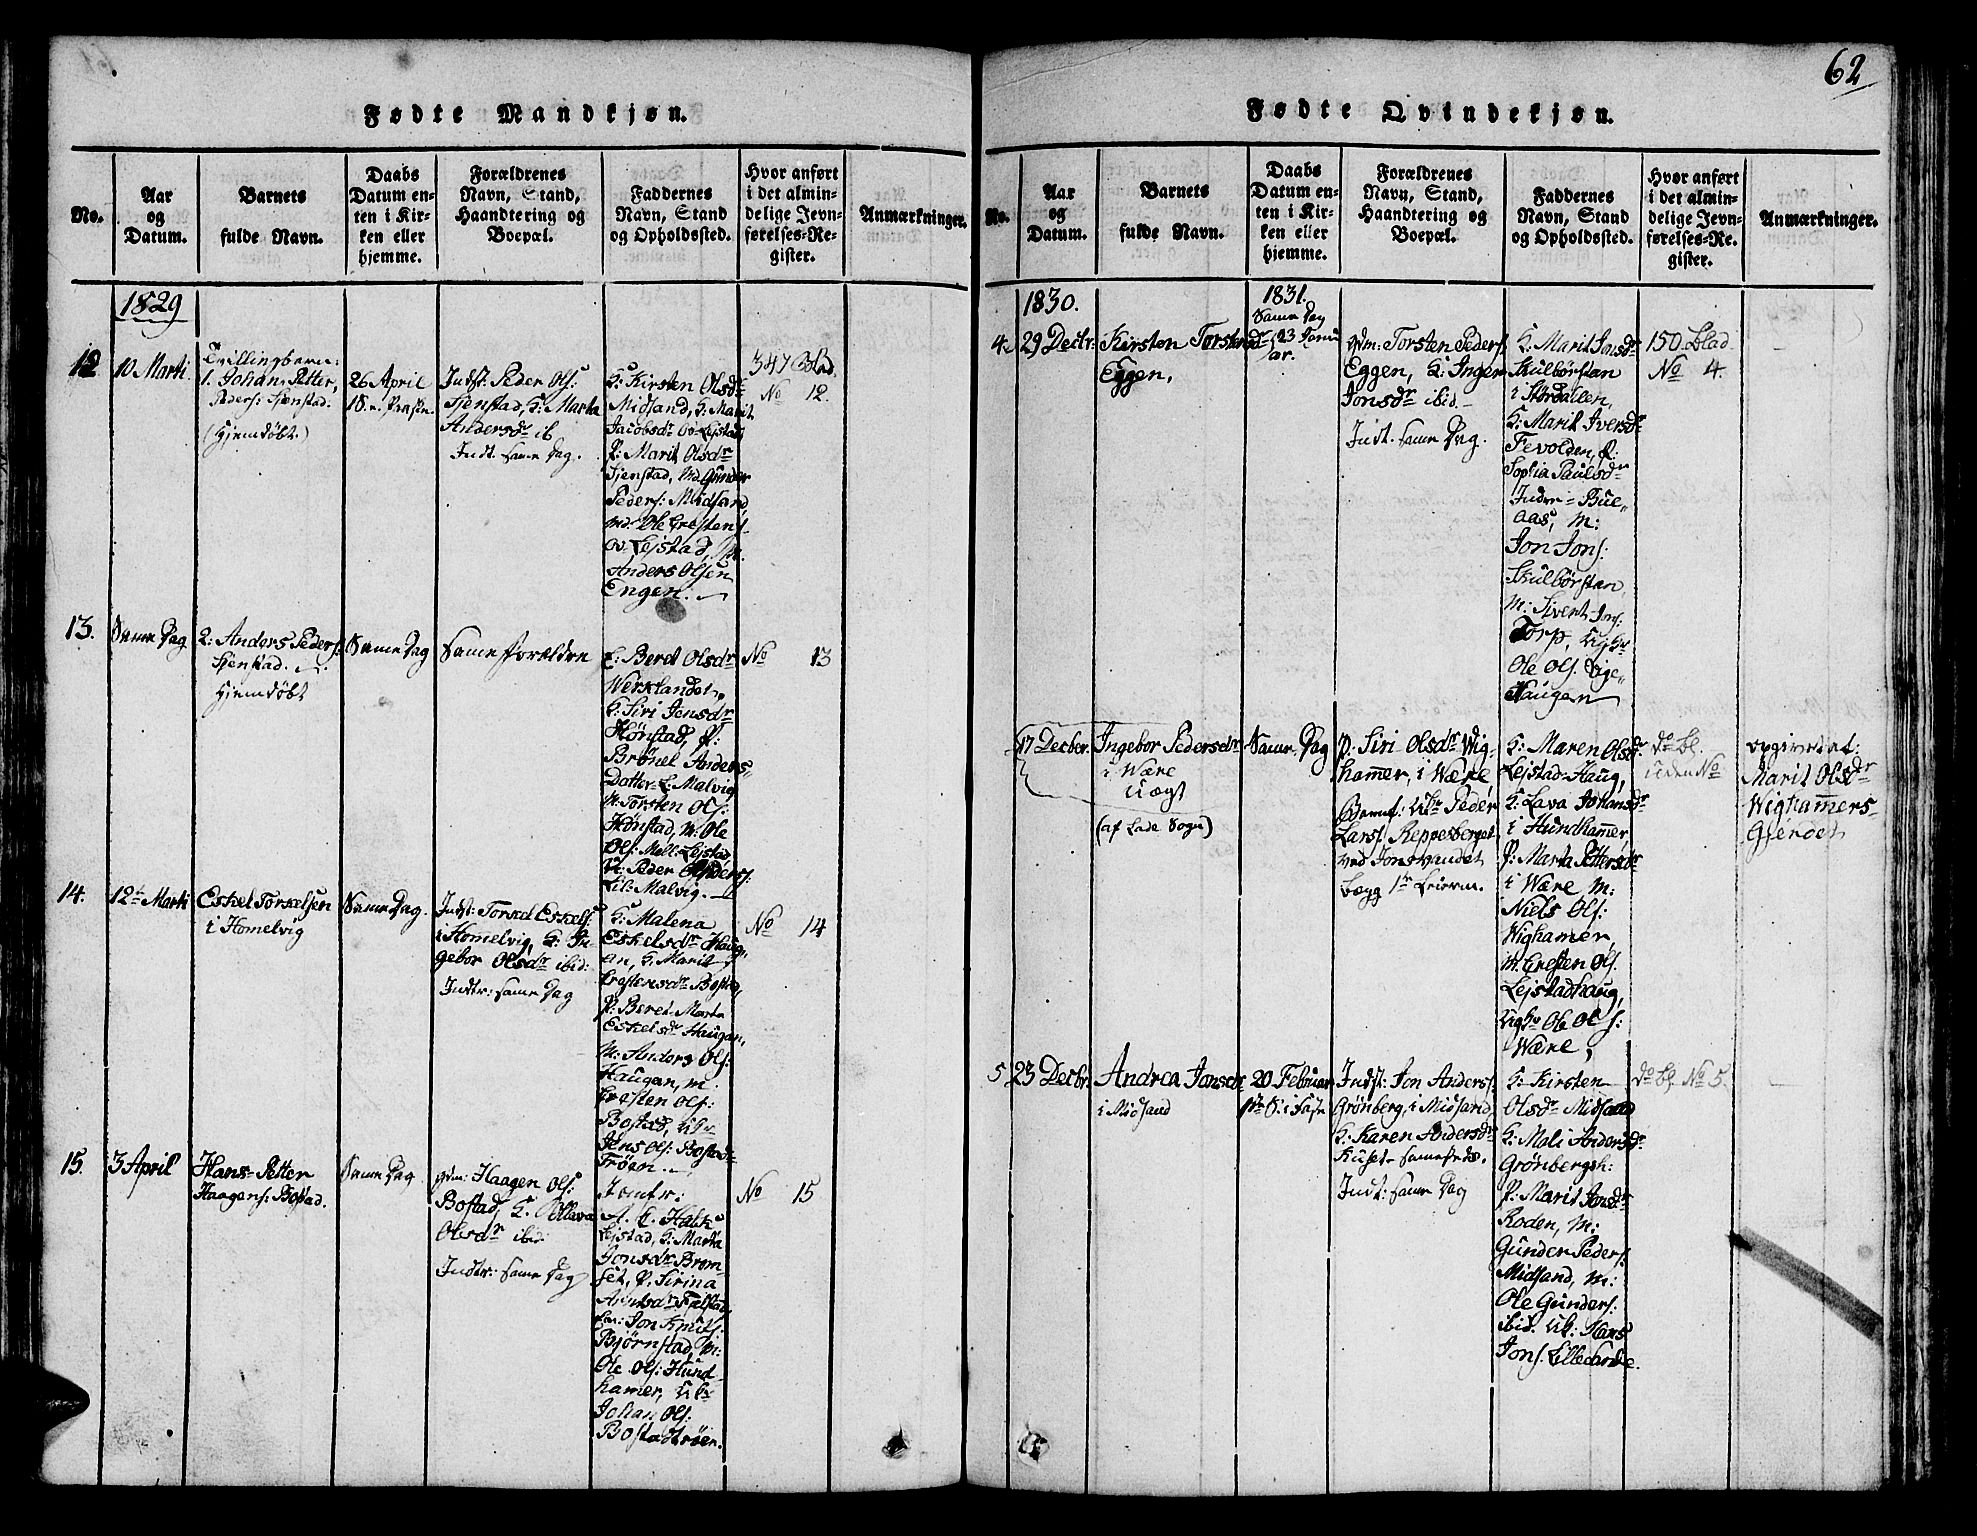 62
Fødte Mandkjøn.
No.
Aar
og
Datum.
Barnets
fulde Navn.
Daabs
Datum en-
ten i Kir-
ken eller
hjemme.
Forældrenes
Navn, Stand,
Haandtering og
Boepæl.
Faddernes
Navn, Stand
og Opholdssted.
Hvor anført
i det almin-
delige Jevn-
førelses-Re-
gister.
Anmærkninger.
1829
12
10 Marti
Tvillingbørn:
1. Johan Petter,
Peders: Sjenstad.
(Hjemdøbt.)
26 April
Indst: Peder Ols:
Sjenstad, K: Marta
Andersdr ib
Indt. samme Dag.
K: Kirsten Olsdr
Midsand, K: Marit
Jacobsdr Ov-Lejstad
P: Marit Olsdr
Sjenstad, Md: Gunder
Peders: Midsand
md. Ole Crestens:
ov. Lejstad, M.
Anders Olsen
Engen.
347 Blad.
No 12.
13.
Samme Dag
2: Anders Peders:
Sjenstad.
Hjemdøbt
Samme Dag
Samme forældre
K: Beret Olsdr
Werklandet,
K: Siri Jensdr
Hønstad, P:
Brønel Anders-
Datter L: Malvig
M: Torsten Ols:
Hønstad, M: Ole
Ols: Mell: Lejstad
Lil: Malvig.
No 13
14.
12te Marti
Eskel Torkelsen
i Homelvig
Samme Dag.
Indst: Torkel Eskels:
i Homelvig, K: In-
gebor Olsdr ibid:
Indtr: samme Dag
K: Malena
Eskelsdr Haug-
an, K: Marit
Crestensdr Bostad,
P: Beret Marta
Eskelsdr Haugan,
M: Anders Ols:
Haugan, m:
Cresten Ols:
Bostad, Ukr
Jens Ols: Bostad-
Trøen.
No 14
15.
3 April
Hans-Petter
Haagens: Bostad.
Samme Dag
gvm: Haagen Ols:
Bostad, K: Ollava
Olsdr ibid:
Indtr: samme Dag
Jomfr:
Lejstad, K: Marta
Jonsdr Brom-
set, P. Sirina
Jon Knuts:
Bjørnstad, m:
Ole Ols: Hund-
hamer, Ukr
Johan Ols:
Bostadtrøen.
No 15
Fødte Qvindekjøn.
No.
Aar
og
Datum.
Barnets
fulde Navn.
Daabs
Datum en-
ten i Kir-
ken eller
hjemme.
Forældrenes
Navn, Stand,
Haandtering og
Boepæl.
Faddernes
Navn, Stand
og Opholdssted.
Hvor anført
i det almin-
delige Jevn-
førelses-Re-
gister.
Anmærkninger.
1830.
1831.
4.
29 Decbr.
Kirsten Torstensdr
Eggen,
Samme Dag
23 Janu
ar.
gvm: Torsten Peders:
Eggen, K: Inger
Jonsdr ibid.
Indt. samme Dag.
K: Marit Jonsdr
Skulbørstan
i Størdalen,
K: Marit Iversdr
Fevolden, P:
Sophia Paulsdr
Indre-Bue-
aas, m:
Jon Jons:
Skulbørstan
m: Sivert Jons:
Torp, Ughr
Ole Ols. Vige-
Haugen
150 Blad
No 4.
17 Decbr.
Ingebor Pedersdr
i Wære
Uægt
(af Lade Sogn)
Samme Dag
P. Siri Olsdr Wig-
hammer, i Wære
Barnef: Ukr Peder
Lars: Reppesberget
ved Jonsvandet
begg 1ste Leierm.
K: Maren Olsdr
Lejstad-Haug,
K: Lava Johansdr
i Hundhammer
P: Marta Pettersdr
i Wære M:
Niels Ols:
Wighamer,
M: Cresten Ols.
Lejstadhaug,
Ughr Ole Ols:
Wære,
do bl.
uden No
opgivet af:
Marit Olsdr
Wighammers-
Gjerdet
5
23 Decbr.
Andrea Jonsdr
i Midsand
20 Februar
1ste S: i Faste
Indst: Jon Anders:
Grønberg, i Midsand,
K: Karen Andersdr
Kuset- sammesteds.
Indt: samme Dag
K: Kirsten
Olsdr Midsand
K: Mali Andersdr
Grønbergsh:
P: Marit Jonsdr
Roden, m:
Gunder Peders:
Midsand, m:
Ole Gunders:
ibid. Uk: Hans
Jons:
do bl. No 5.